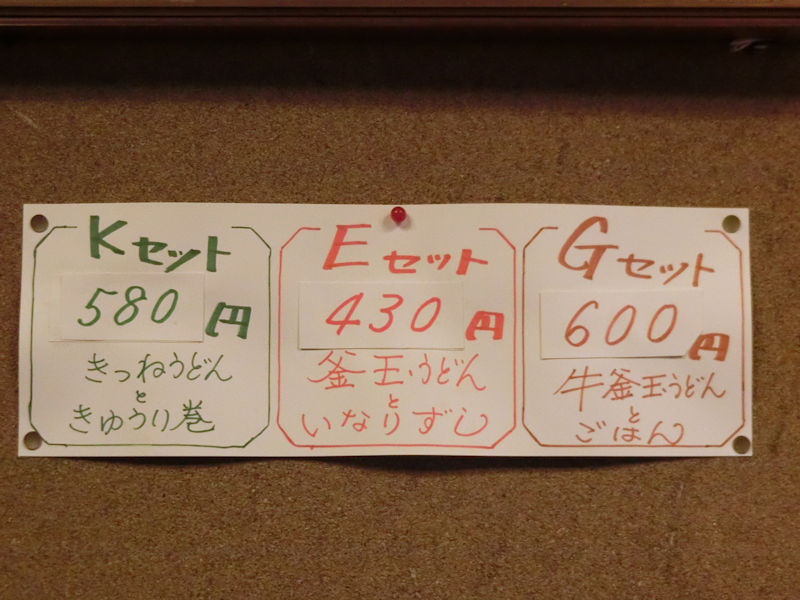 Kセット
580円
きつねうどん
と
きゅうり巻
Eセット
430円
釜玉うどん
と
いなりずし
Gセット
600円
牛釜玉うどん
と
ごはん